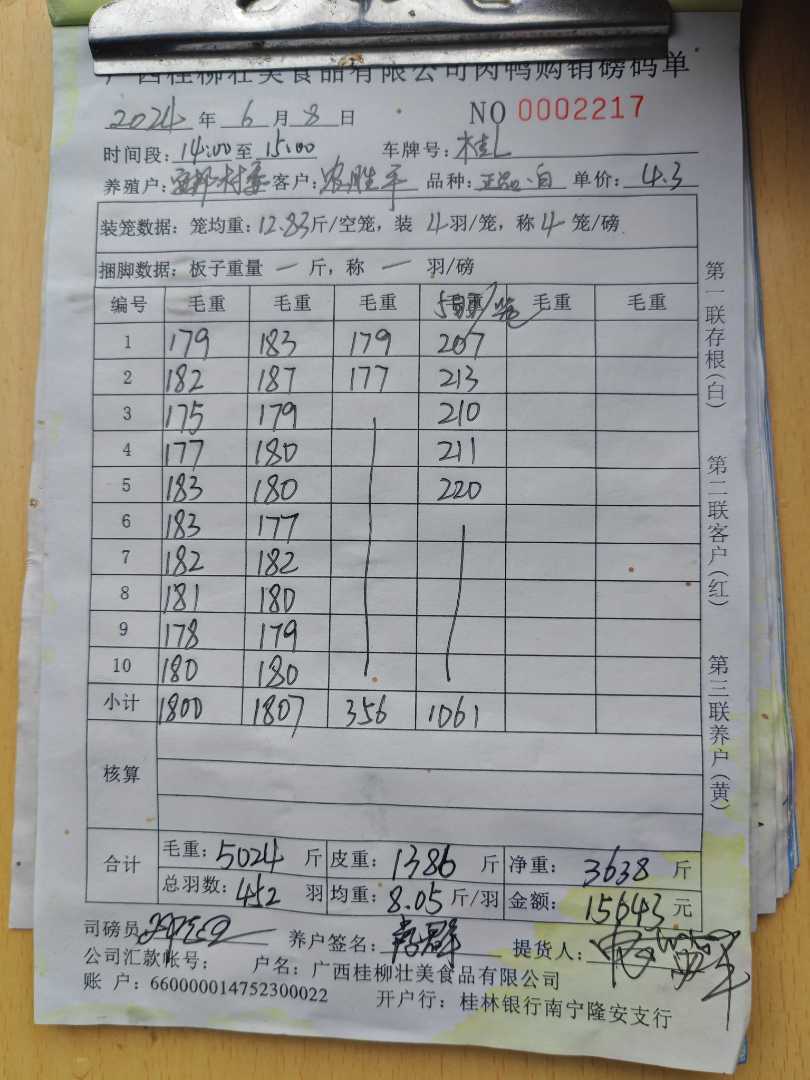 广西桂柳壮美食品有限公司肉鸭购销磅码单
2024 年 6 月 8 日 NO 0002217
时间段: 14:00 至 15:00 车牌号: 桂L
养殖户: 村委 客户: 农胜平 品种: 正品.白 单价: 4.3
装笼数据: 笼均重: 12.83 斤/空笼, 装 4 羽/笼, 称 4 笼/磅
捆脚数据: 板子重量 一 斤, 称 一 羽/磅
编号 毛重 毛重 毛重 毛重 毛重 毛重
1 179 183 179 207
2 182 187 177 213
3 175 179 210
4 177 180 211
5 183 180 220
6 183 177
7 182 182
8 181 180
9 178 179
10 180 180
小计 1800 1807 356 1061
核算
合计 毛重: 5024 斤 皮重: 1386 斤 净重: 3638 斤
总羽数: 452 羽 均重: 8.05 斤/羽 金额: 15643 元
司磅员 养户签名: 提货人:
公司汇款帐号: 户名: 广西桂柳壮美食品有限公司
账 户: 660000014752300022 开户行: 桂林银行南宁隆安支行
第一联存根(白) 第二联客户(红) 第三联养户(黄)